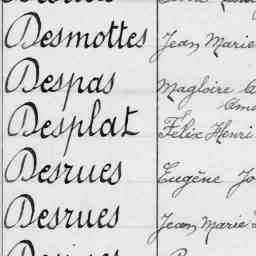 Desmottes Jean Marie
Despas Magloire
Desplat Félix Henri
Desrues Eugène
Desrues Jean Marie